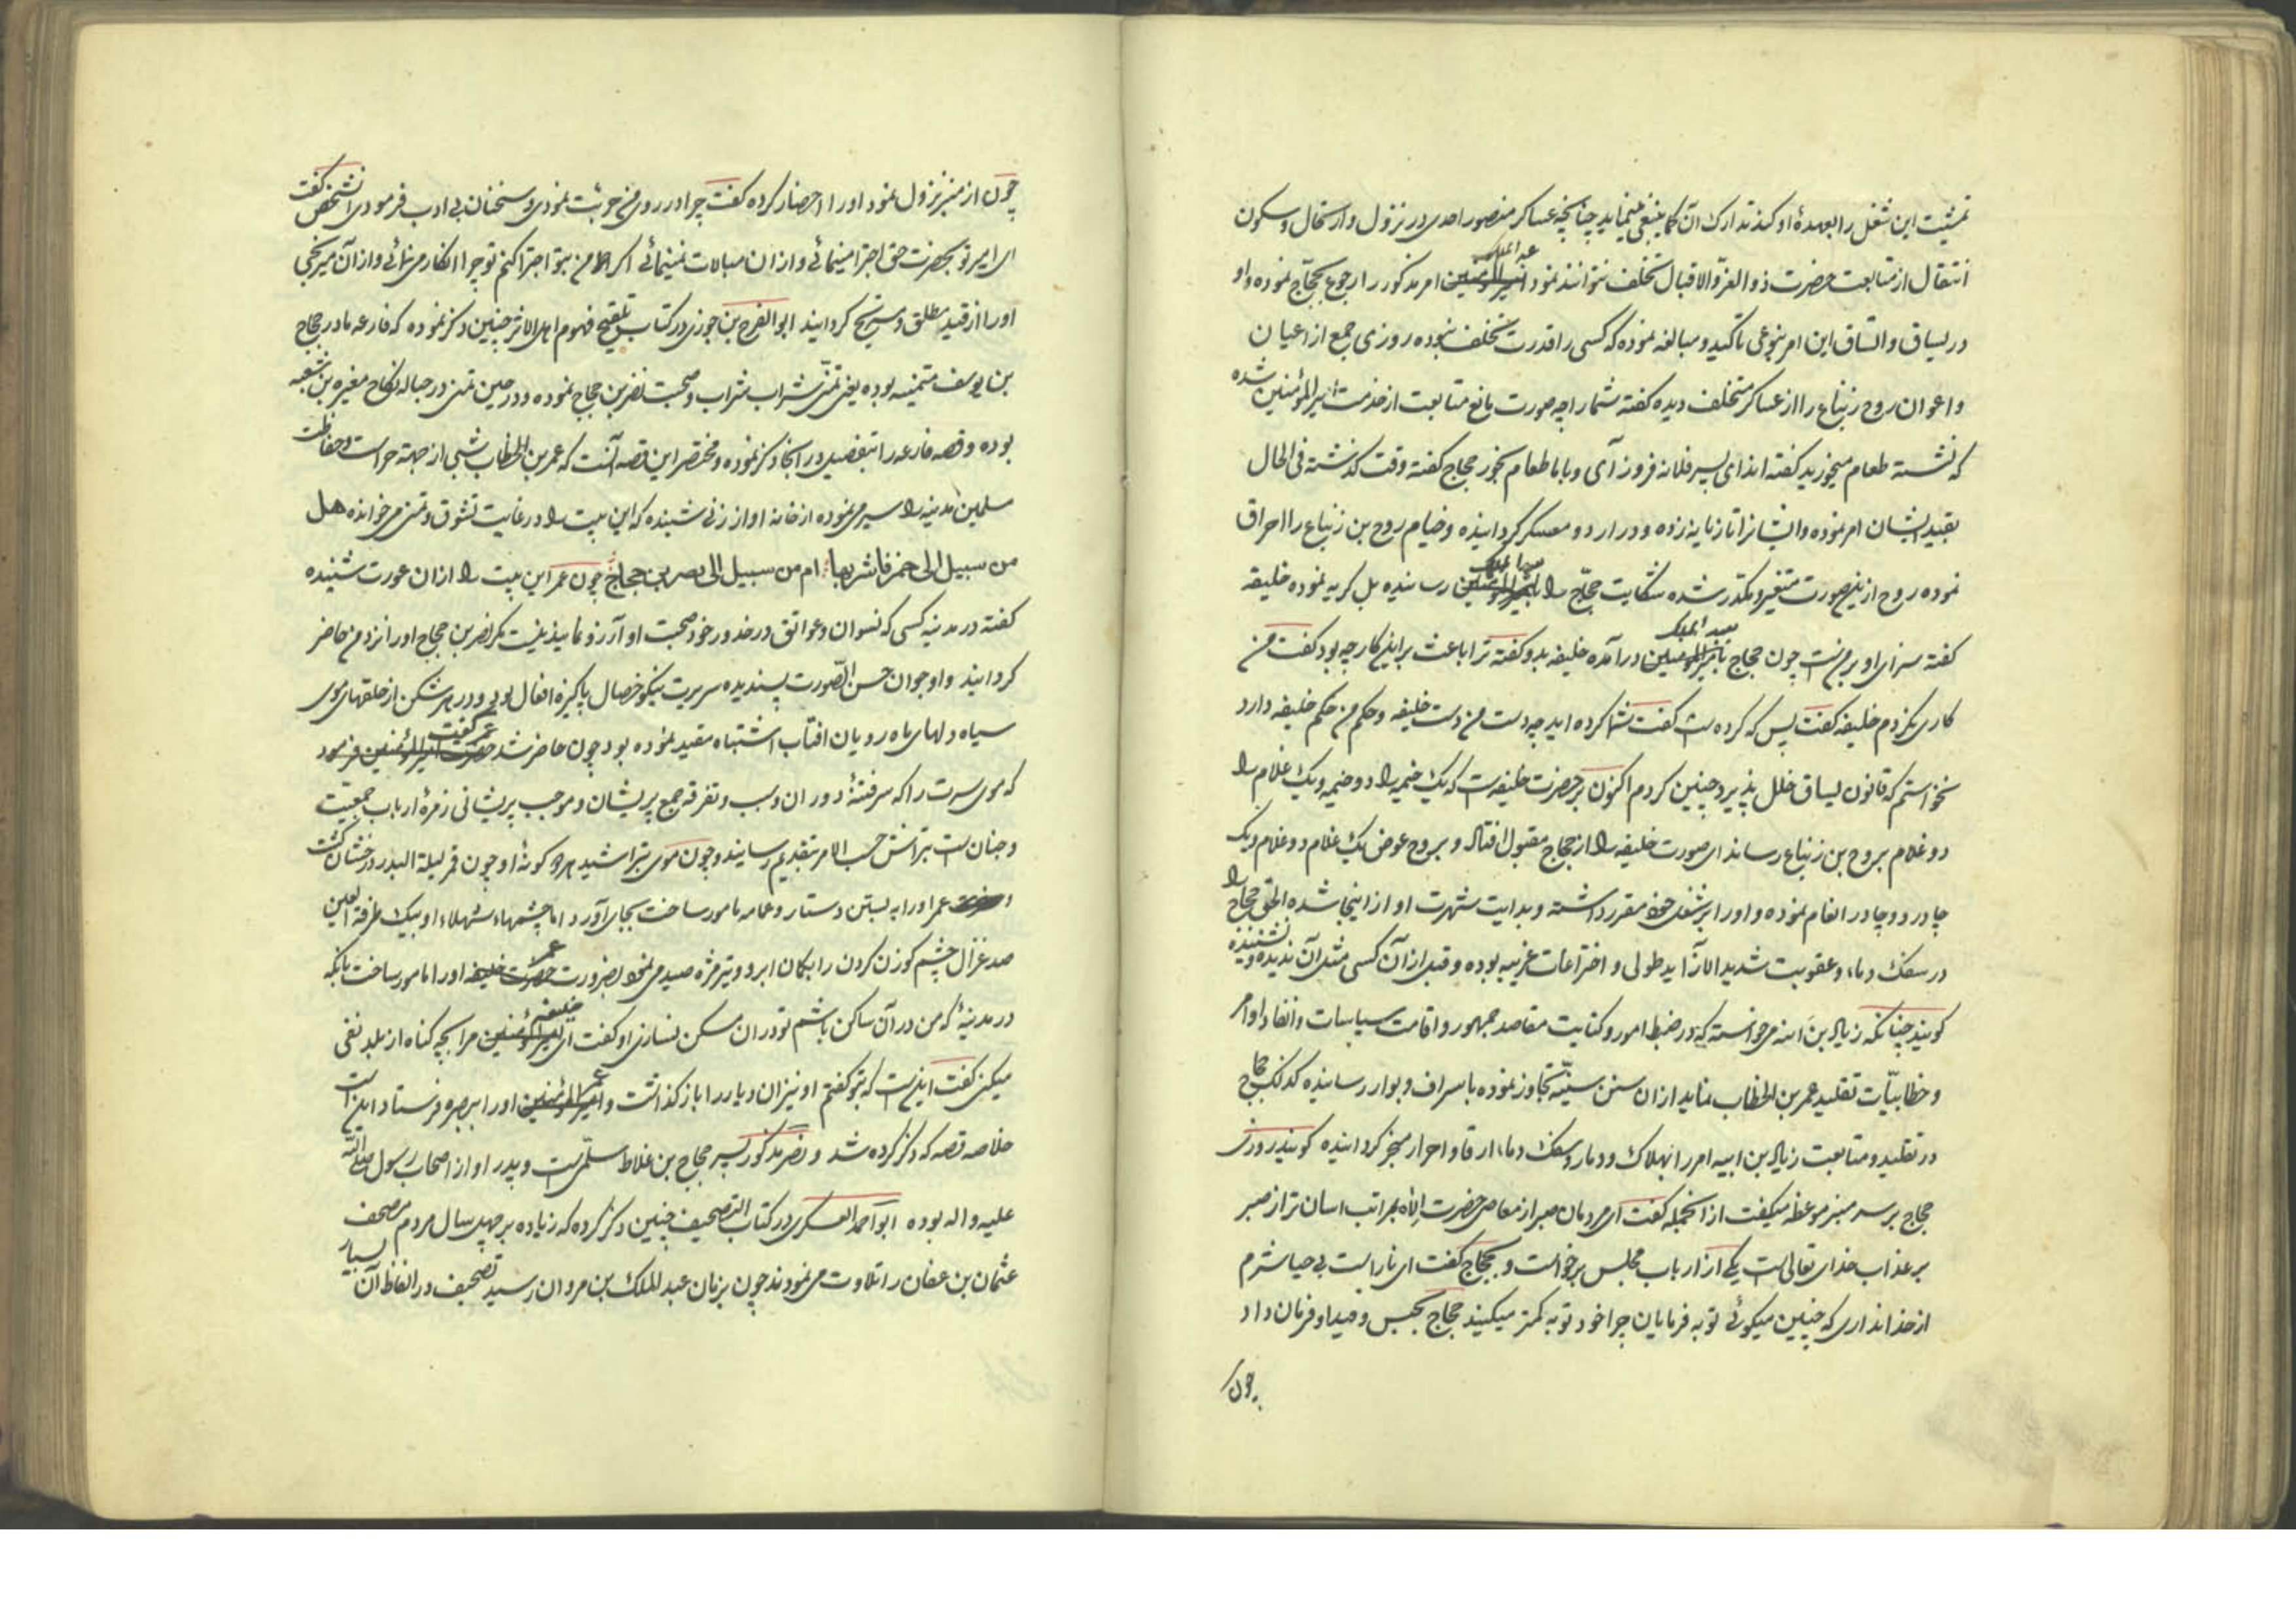 تمشیت این شغل را بعهدهٔ او کند تدارک آن کما ینبغی مینماید چنانچه عساکر منصور احدی در نزول و ارتحال و سکون
انتقال از متابعت حضرت ذو العزّ و الاقبال تخلف نتوانند نمود عبد الملک امر مذکور را رجوع بحجّاج نموده و او
در یساق و اتساق این امر بنوعی تاکید و مبالغه نموده که کسی را قدرت تخلف نبوده روزی جمع از اعیان
و اعوان روح زنباع را از عساکر متخلف دیده گفته شما را چه صورت مانع متابعت از خدمت امیر المؤمنین شده
که نشسته طعام میخورید گفته اند ای پسر فلانه فرود آی و با ما طعام بخور حجاج گفته وقت گذشته فی الحال
بقید ایشان امر نموده و ایشانرا تازیانه زده و در اردو معسکر گردانیده و خیام روح بن زنباع را احراق
نموده روح ازین صورت متغیر و مکدر شده شکایت حجّاج را بعبد الملک رسانیده بل گریه نموده خلیفه
گفته سزای او بر منست چون حجاج بعبد الملک درآمده خلیفه بدو گفته ترا باعث برین کار چه بود گفت من
کاری نکردم خلیفه گفت پس که کرده است گفت شما کرده اید چه دست من دست خلیفه و حکم من حکم خلیفه دارد
نخواستم که قانون یساق خلل پذیرد چنین کردم اکنون بر حضرت خلیفه است که یک خیمه را دو خیمه و یک غلام را
دو غلام بروح بن زنباع رساند این صورت خلیفه را از حجاج مقبول افتاد و بروح عوض یک غلام دو غلام و یک
چادر دو چادر انعام نموده و او را بر شغل خود مقرر داشته و بدایت شهرت او از اینجا شده الحق حجاج را
در سفک دماء و عقوبت شدید الآزار ید طولی و اختراعات غریبه بوده و قبل از آن کسی مثل آن ندیده و نشنیده
گویند چنانکه زیاد بن ابیه میخواسته که در ضبط امور و کفایت مقاصد جمهور و اقامت سیاسات و انفاد اوامر
و خطابیّات تقلید عمر بن الخطاب نماید از ان سنن سنیّه تجاوز نموده باسراف و بوار رسانیده کذلک حجاج
در تقلید و متابعت زیاد بن ابیه امر را بهلاک و دمار و سفک دماء ارقا و احرار منجر گردانیده گویند روزی
حجاج بر سر منبر موعظه میگفت از انجمله گفت ای مردمان صبر از معاصی حضرت اِلاه بمراتب اسان تر از صبر
بر عذاب خدای تعالی است یکی از ارباب مجلس برخواست و بحجاج گفت ای ناراست بی حیا شرم
از خدا نداری که چنین میگوئی توبه فرمایان چرا خود توبه کمتر میکنند حجاج بحبس و قید او فرمان داد
چون
چون از منبر نزول نمود او را احضار کرده گفت چرا در روی من جرئت نمودی و سخنان بی ادب فرمودی انشخص گفت
ای امیر تو بحضرت حق اجترا مینمائی و از ان مبالات نمینمائی اگر من بتو اجترا کنم تو چرا انکار می نمائی و از آن میرنجی
او را از قید مطلق و مسرّح گردانید ابو الفرج بن جوزی در کتاب تلقیح فهوم اهل الاثر چنین ذکر نموده که فارعه مادر حجاج
بن یوسف متمنیه بوده یعنی تمنّی شراب شراب و صحبت نصر بن حجاج نموده و در حین تمنی در حباله نکاح مغیره بن شعبه
بوده و قصه فارعه را بتفصیل در انجا ذکر نموده و مختصر این قصه آنست که عمر بن الخطاب شبی از جهة حراست و حفاظت
مسلمین مدینه را سیر می نموده از خانه اواز زنی شنیده که این بیت را در غایت تشوق و تمنی می خوانده هل
من سبیل الی خمر فاشربها ام من سبیل الی نصر بن حجاج چون عمر این بیت را از ان عورت شنیده
گفته در مدینه کسی که نسوان و عواتق در خدور خود صحبت او آرزو نمایند نیست مگر نصر بن حجاج او را نزد من حاضر
گردانید و او جوان حسن الصّورت پسندیده سریرت نیکو خصال پاکیزه افعال بود و در هر شکن از حلقهای موی
سیاه دلهای ماه رویان افتاب اشتباه مقید نموده بود چون حاضر شد عمر گفت
که موی سرت را که سر فتنهٔ دوران و سبب و تفرقه جمع پریشان و موجب پریشانی زمرهٔ ارباب جمعیّت
و جنان است بتراش حسب الامر بتقدیم رسانید و چون موی بتراشید هر دو گونهٔ او چون قمر لیلة البدر درخشان گشت
عمر او را به بستن دستار و عمامه مامور ساخت بجای آورد اما چشمهاء شهلاء او بیک طرفة العین
صد غزال چشم گوزن گردن را بکمان ابرو و تیر مژه صید می نمود بضرورت عمر او را مامور ساخت بانکه
در مدینهٔ که من در آن ساکن باشم تو در ان مسکن نسازی او گفت ای خلیفه مرا بچه گناه از بلد نفی
میکنی گفت اینست که بتو گفتم او نیز ان دیار را باز گذاشت و عمر او را ببصره فرستاد این است
خلاصه قصه که ذکر کرده شد و نصر مذکور پسر حجاج بن علاط سلّمی است و پدر او از اصحاب رسول صلی الله
علیه و اله بوده ابو احمد العسکری در کتاب التصحیف چنین ذکر کرده که زیاده بر چهل سال مردم مصحف
عثمان بن عفان را تلاوت می نمودند چون بزمان عبد الملک بن مروان رسید تصحیف در الفاظ آن بسیار